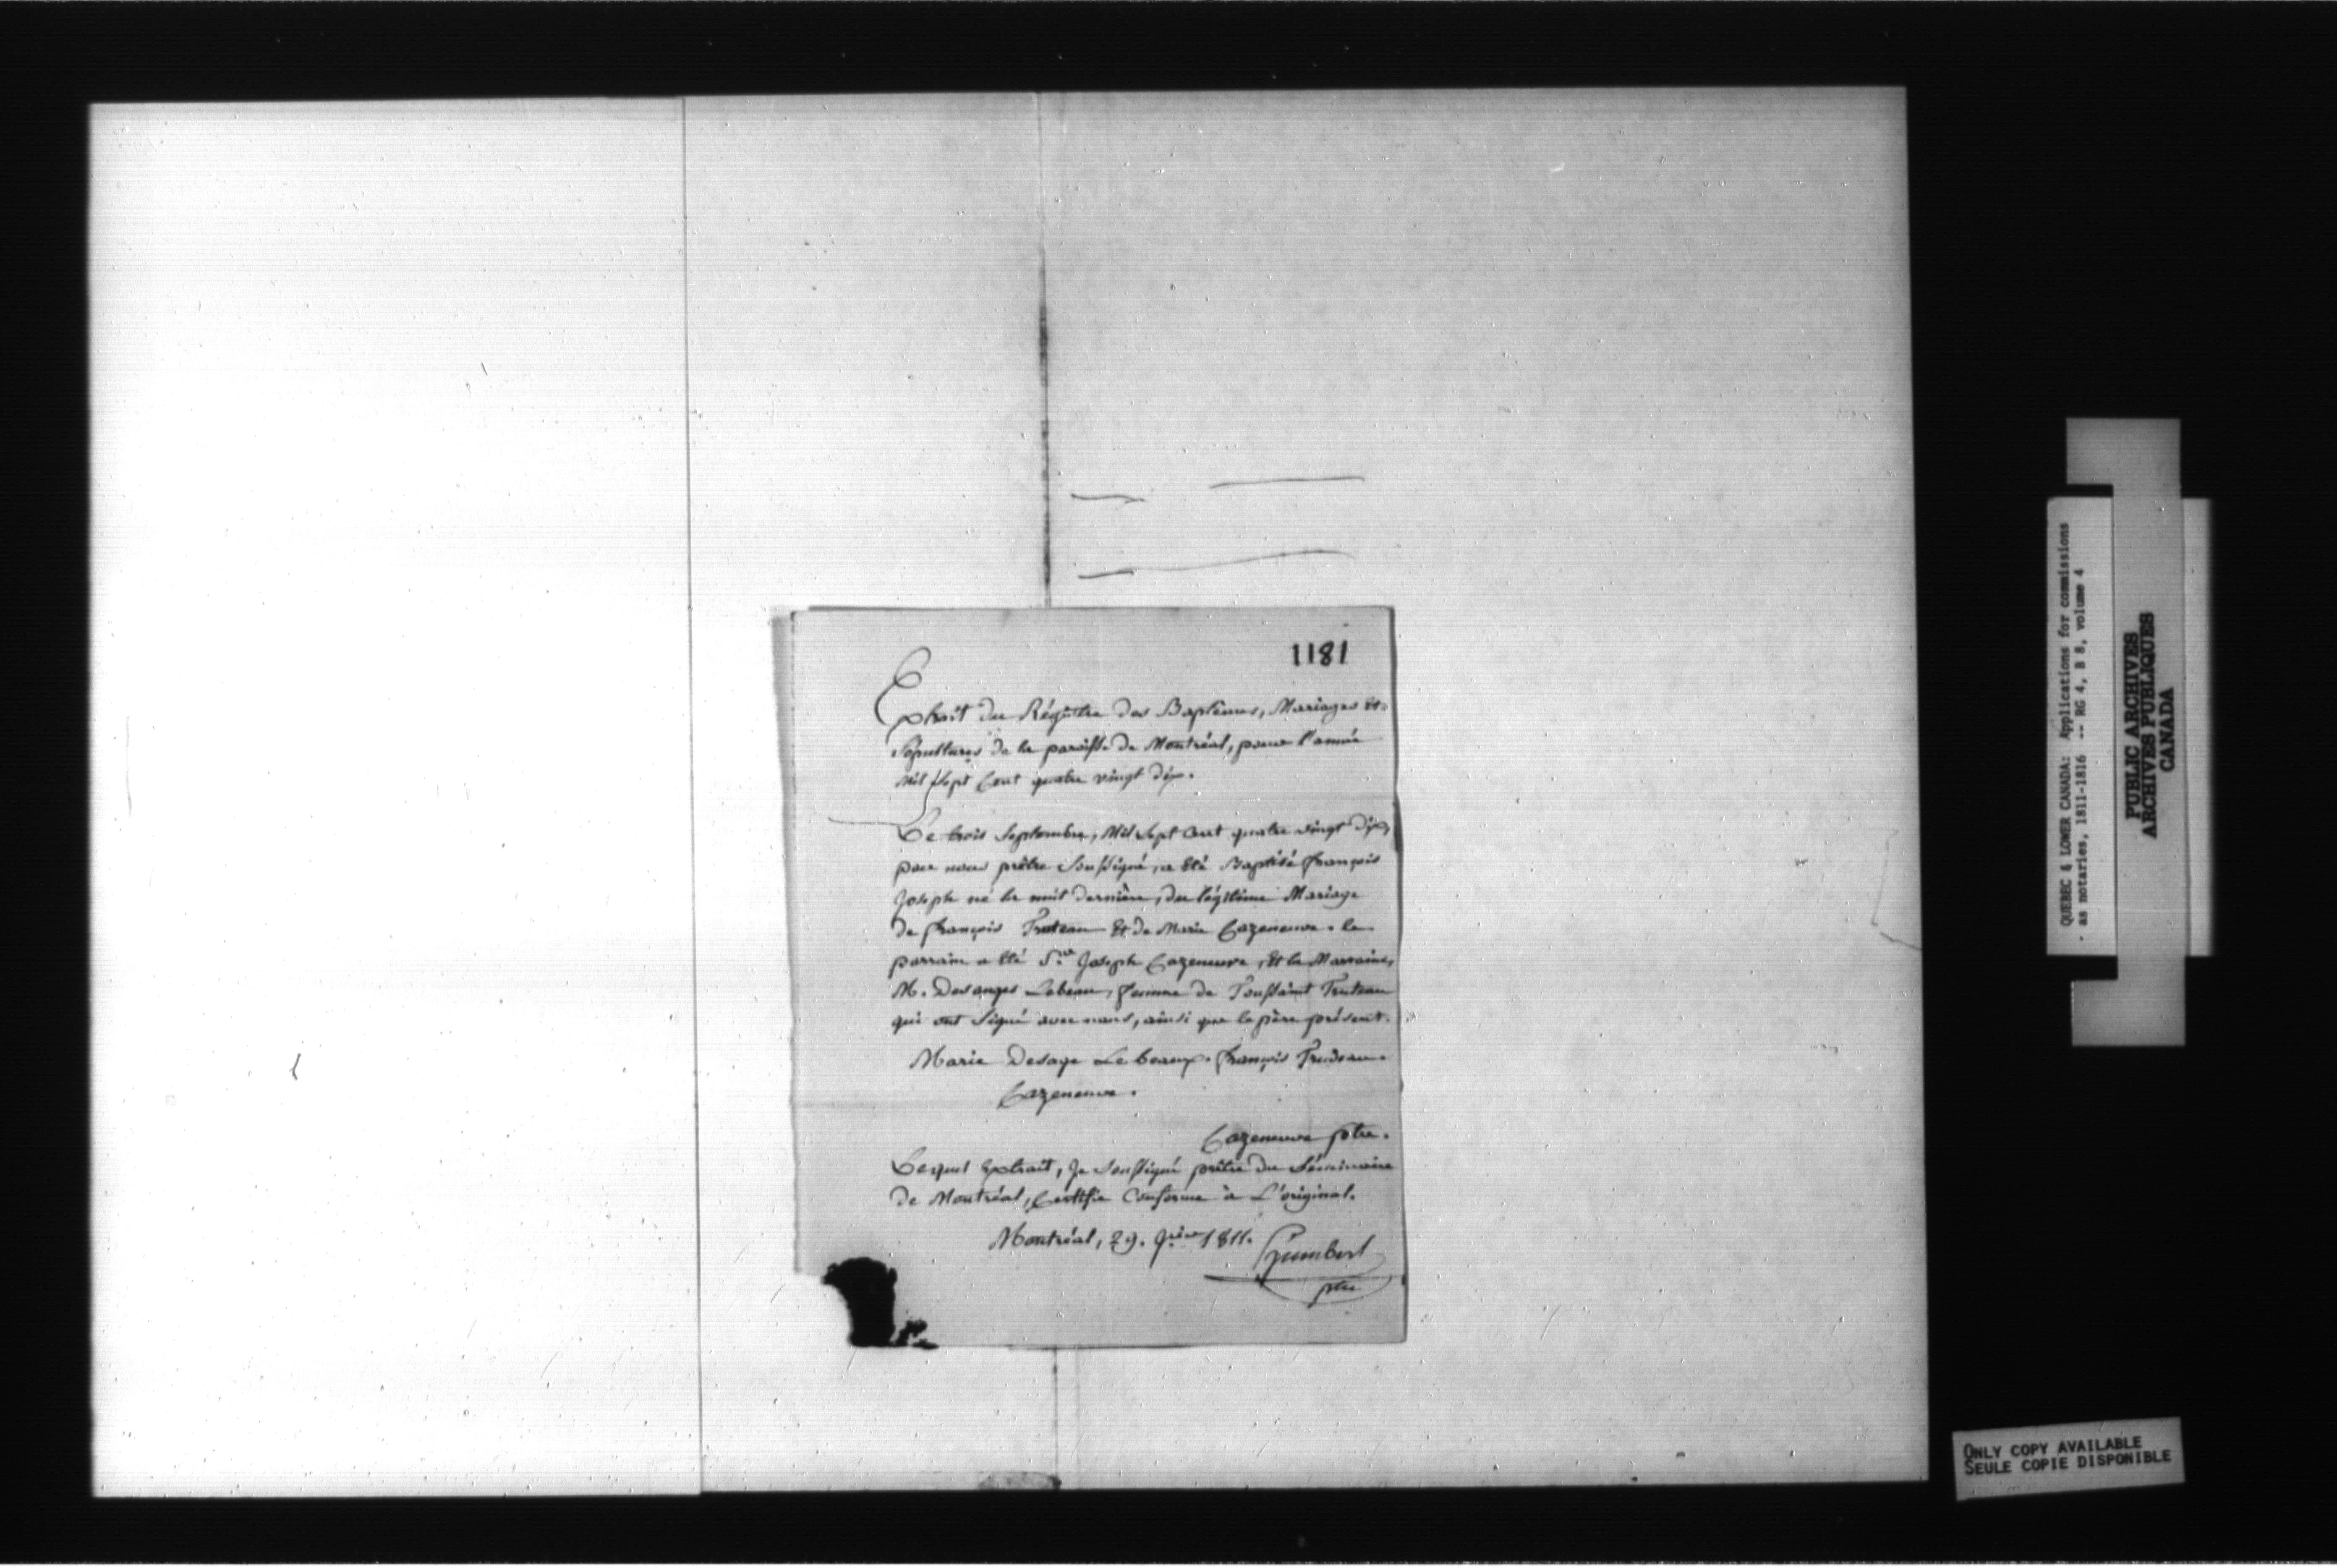 1181
Extrait du Régistre des Baptêmes, Mariages et
Sépultures de la paroisse de Montréal, pour l'année
Mil Sept Cent quatre vingt dix.
Le trois Septembre, Mil Sept Cent quatre vingt dix,
par nous prêtre Soussigné, a été Baptisé françois
Joseph né la nuit dernière, du légitime Mariage
de françois Truteau Et de Marie Cazeneuve. le
parrain a été Sr. Joseph Cazeneuve, Et la Marraine,
M. Desanges Lebeau, femme de Toussaint Truteau
qui ont Signé avec nous, ainsi que le père présent.
Marie Desage Le beaux. françois Trudeau.
Cazeneuve.
Cazeneuve ptre.
Lequel Extrait, Je Soussigné prêtre du Séminaire
de Montréal, Certifie Conforme à L'original.
Montréal, 29. 1811.
Humbert
ptre
QUEBEC & LOWER CANADA: Applications for commissions
as notaries, 1811-1816 -- RG 4, B 8, volume 4
PUBLIC ARCHIVES
ARCHIVES PUBLIQUES
CANADA
ONLY COPY AVAILABLE
SEULE COPIE DISPONIBLE